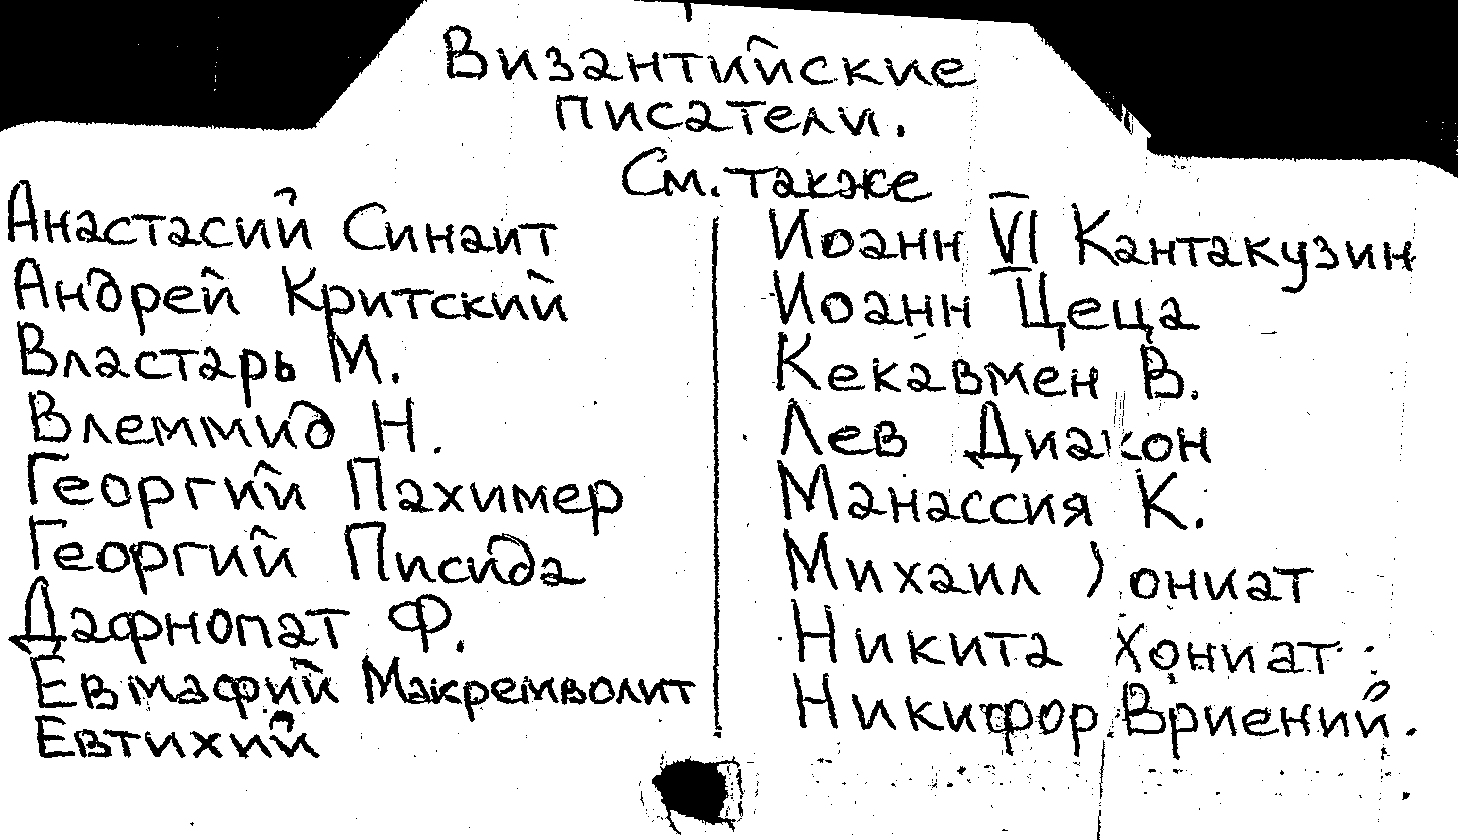 Византийские
писатели.
См. также
Анастасий Синаит
Андрей Критский
Властарь М.
Влеммид Н.
Георгий Пахимер
Георгий Писида
Дафнопат Ф.
Евмафий Макремволит
Евтихий
Иоанн VI Кантакузин
Иоанн Цеца
Кекавмен В.
Лев Диакон
Манассия К.
Михаил Хониат
Никита Хониат
Никифор Вриений.